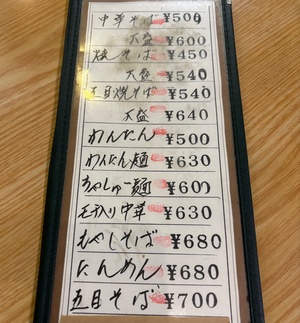 中華そば ¥500
大盛 ¥600
焼そば ¥450
大盛 ¥540
五目焼そば ¥540
大盛 ¥640
わんたん ¥500
わんたん麺 ¥630
ちゃしゅー麺 ¥600
玉子入り中華 ¥630
もやしそば ¥680
たんめん ¥680
五目そば ¥700